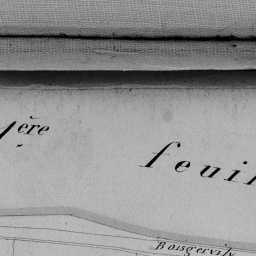 1ère
feuil
Boisgervily